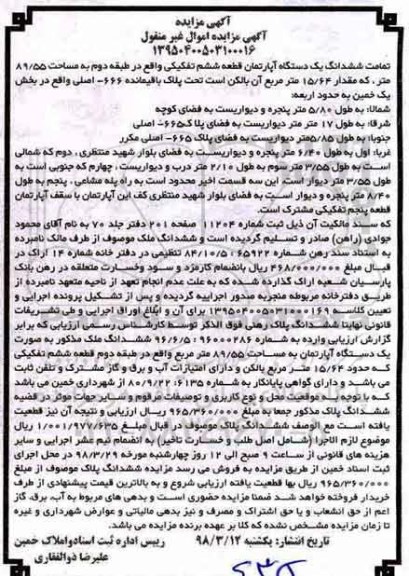 آگهی مزایده
آگهی مزایده اموال غیر منقول
۱۳۹۵۰۴۰۰۵۰۳۱۰۰۰۱۶
تمامت ششدانگ یک دستگاه آپارتمان قطعه ششم تفکیکی واقع در طبقه دوم به مساحت ۸۹/۵۵
متر ، که مقدار ۱۵/۶۴ متر مربع آن بالکن است تحت پلاک باقیمانده ۶۶۶- اصلی واقع در بخش
یک خمین به حدود اربعه:
شمالا: به طول ۵/۸۰ متر پنجره و دیواریست به فضای کوچه
شرقا: به طول ۱۷ متر متر دیواریست به فضای پلا ک۶۶۵- اصلی
جنوبا: به طول ۵/۸۵متر دیواریست به فضای پلاک ۶۶۵- اصلی مکرر
غربا: اول به طول ۶/۴۰ متر پنجره و دیواریست به فضای بلوار شهید منتظری ، دوم که شمالی
است به طول ۳/۵۵ متر سوم به طول ۲/۱۰ متر درب و دیواریست ، چهارم که جنوبی است به
طول ۳/۵۵ متر دیوار است. این سه قسمت اخیر محدود است به راه پله مشاعی ، پنجم به طول
۸/۴۰ متر پنجره و دیوار است به فضای بلوار شهید منتظری کف این آپارتمان با سقف آپارتمان
قطعه پنجم تفکیکی مشترک است.
که سند مالکیت آن ذیل ثبت شماره ۱۱۲۰۴ صفحه ۲۰۱ دفتر جلد ۷۰ به نام آقای محمود
جوادی (راهن) صادر و تسلیم گردیده است و ششدانگ ملک موصوف از طرف مالک نامبرده
به استناد سند رهن شماره ۶۵۹۲۲ - ۸۴/۱۰/۵ تنظیمی در دفتر خانه شماره ۱۴ اراک در
قبال مبلغ ۴۶۸/۰۰۰/۰۰۰ ریال بانضمام کارمزد و سود وخسارت متعلقه در رهن بانک
پارسیان شعبه اراک گذارده شده که به علت عدم انجام تعهد از ناحیه متعهد نامبرده از
طریق دفترخانه مربوطه منجربه صدور اجراییه گردیده و پس از تشکیل پرونده اجرایی و
تعیین کلاسه ۱۳۹۵۰۴۰۰۵۰۳۱۰۰۰۱۶۹ برای آن و ابلاغ اوراق اجرایی و طی تشریفات
قانونی نهایتا ششدانگ پلاک رهنی فوق الذکر توسط کارشناس رسمی ارزیابی که برابر
گزارش ارزیابی وارده به شماره ۹۶۰۰۰۲۸۶ - ۹۶/۶/۵ ششدانگ ملک مذکور به صورت
یک دستگاه آپارتمان به مساحت ۸۹/۵۵ متر مربع واقع در طبقه دوم قطعه ششم تفکیکی
که حدود ۱۵/۶۴ متر مربع بالکن و دارای امتیازات آب و برق و گاز مشترک و تلفن ثابت
می باشد و دارای گواهی پایانکار به شماره ۶۱۳۵- ۸۰/۹/۲۲ از شهرداری خمین می باشد
که با توجه به موقعیت محل و نوع کاربری و توصیفات مرقوم و سایر جهات موثر در قضیه
ششدانگ پلاک مذکور جمعا به مبلغ ۹۶۵/۳۶۰/۰۰۰ ریال ارزیابی و نتیجه آن نیز قطعیت
یافته است مع الوصف ششدانگ پلاک موصوف در قبال مبلغ ۱/۰۰۱/۹۷۷/۶۳۵ ریال
موضوع لازم الاجرا (شامل اصل طلب و خسارت تاخیر) به انضمام نیم عشر اجرایی و سایر
هزینه های قانونی از ساعت ۹ صبح الی ۱۲ روز چهارشنبه مورخه ۹۸/۳/۲۹ در محل اجرای
ثبت اسناد خمین از طریق مزایده به فروش می رسد مزایده ششدانگ پلاک موصوف از مبلغ
۹۶۵/۳۶۰/۰۰۰ ریال بها قطعیت یافته ارزیابی شروع و به بالاترین قیمت پیشنهادی از طرف
خریدار فروخته خواهد شد ضمنا مزایده حضوری است و بدهی های مربوط به آب، برق، گاز
اعم از حق انشعاب و یا حق اشتراک و مصرف و نیز بدهی مالیاتی و عوارض شهرداری و غیره
تا زمان مزایده مشخص نشده که کلا بر عهده برنده مزایده می باشد.
تاریخ انتشار: یکشنبه ۹۸/۳/۱۲
رییس اداره ثبت اسنادواملاک خمین
علیرضا ذوالفقاری